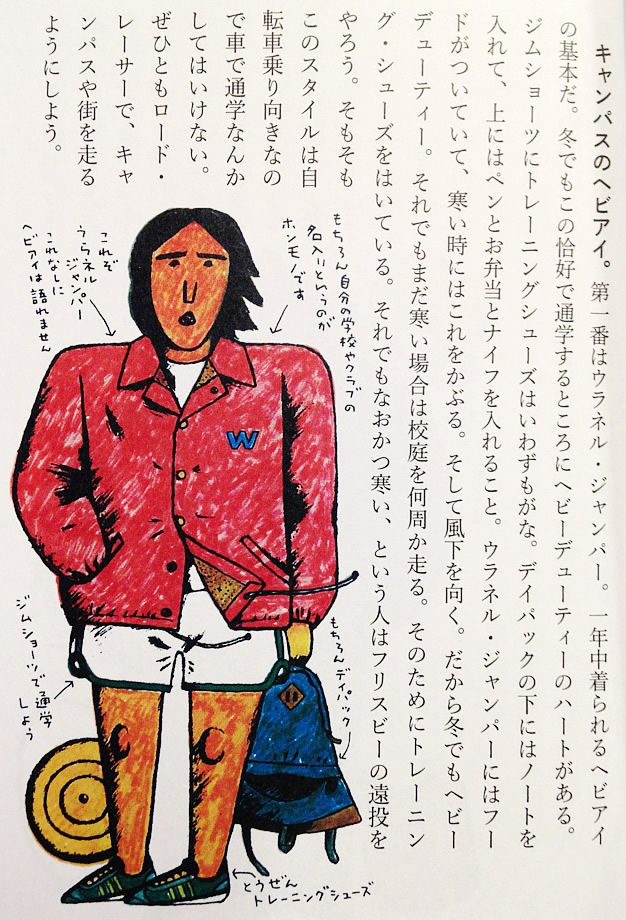 キャンパスのヘビアイ。第一番はウラネル・ジャンパー。一年中着られるヘビアイ
の基本だ。冬でもこの恰好で通学するところにヘビーデューティーのハートがある。
ジムショーツにトレーニングシューズはいわずもがな。デイパックの下にはノートを
入れて、上にはペンとお弁当とナイフを入れること。ウラネル・ジャンパーにはフー
ドがついていて、寒い時にはこれをかぶる。そして風下を向く。だから冬でもヘビー
デューティー。それでもまだ寒い場合は校庭を何周か走る。そのためにトレーニン
グ・シューズをはいている。それでもなおかつ寒い、という人はフリスビーの遠投を
やろう。そもそも
このスタイルは自
転車乗り向きなの
で車で通学なんか
してはいけない。
ぜひともロード・
レーサーで、キャ
ンパスや街を走る
ようにしよう。
もちろん自分の学校やクラブの
名入りというのが
ホンモノです
これぞ
うらネル
ジャンパー
これなしに
ヘビアイは語れません
W
もちろんデイパック
ジムショーツで通学
しよう
とうぜん
トレーニングシューズ